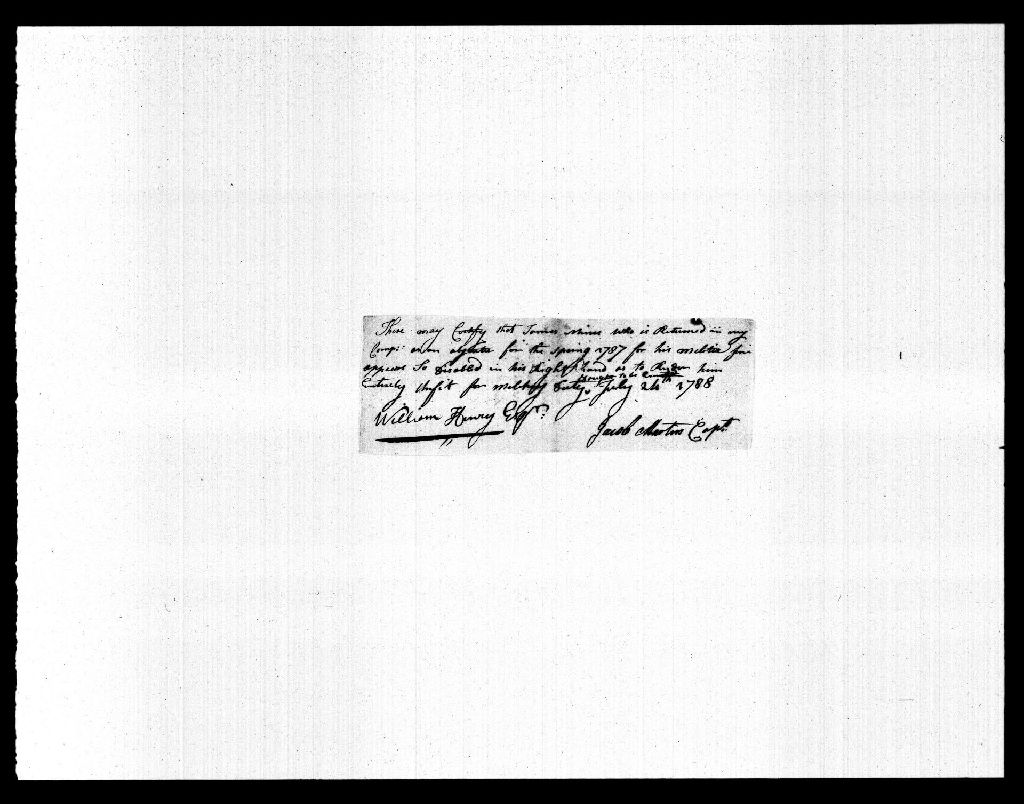 These may Certify that who is Returned in my
Comp: for the Spring 1787 for his militia fine
appears So Disabled in his Right Hand as to Render him
ought to be
Entirely Unfit for military Duty. July 24th 1788
William Henry Esqr.
Jacob Martin Capt.